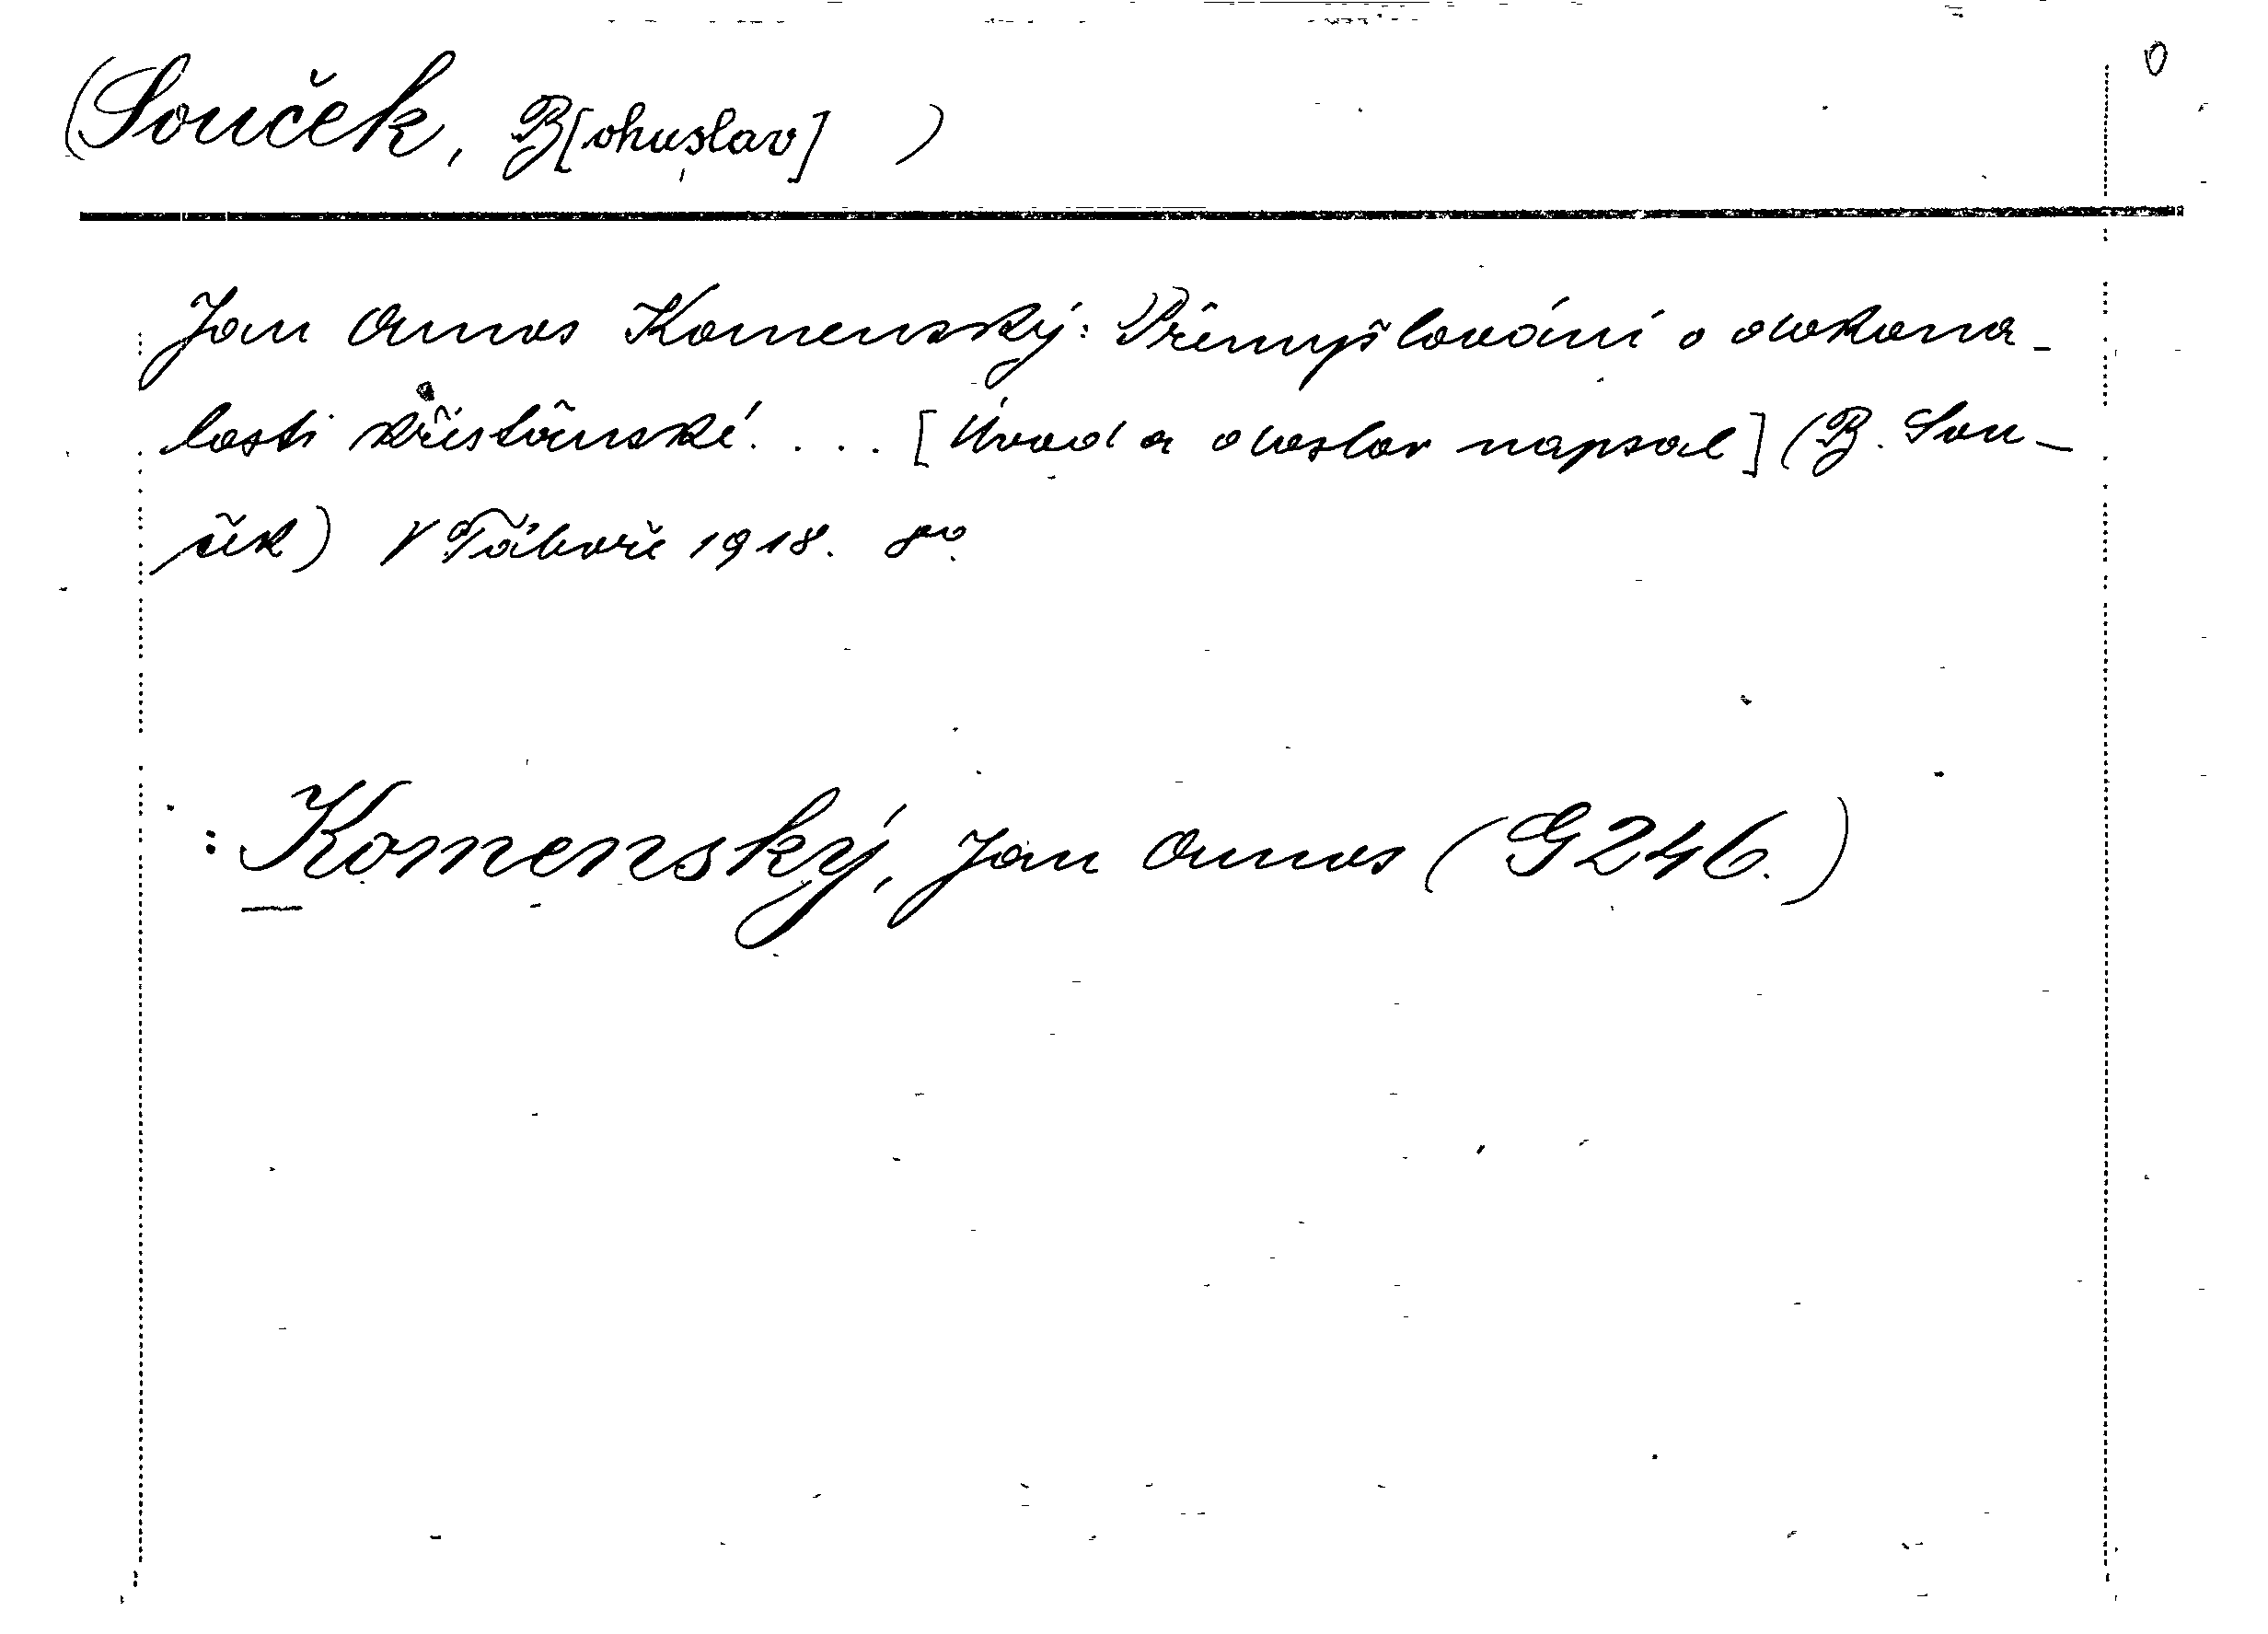 0
(Souček, B[ohuslav] )
Jan Amos Komenský: Přemyšlování o dokona-
losti křesťanské. ... [Úvod a doslov napsal] (B. Sou-
ček) V Táboře 1918. 8°.
: Komenský, Jan Amos (G 246.)